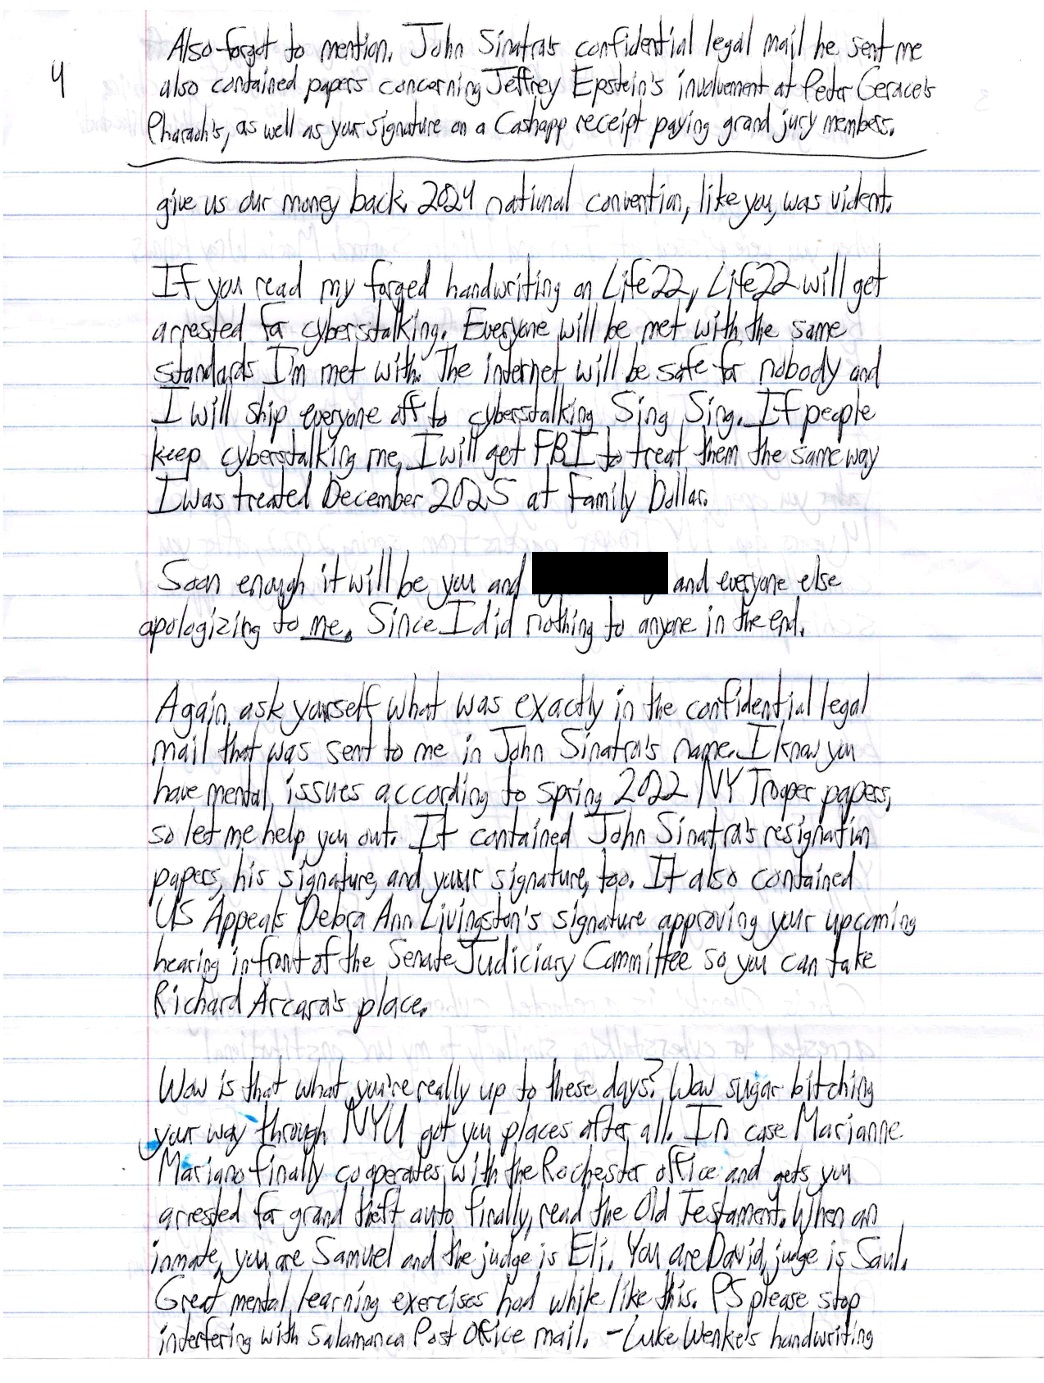 4
Also forgot to mention, John Sinatra's confidential legal mail he sent me
also contained papers concerning Jeffrey Epstein's involvement at Peter Gerace's
Pharaoh's, as well as your signature on a Cashapp receipt paying grand jury members.
give us our money back. 2024 national convention, like you, was violent.
If you read my forged handwriting on Life22, Life22 will get
arrested for cyberstalking. Everyone will be met with the same
standards I'm met with. The internet will be safe for nobody and
I will ship everyone off to cyberstalking Sing Sing. If people
keep cyberstalking me, I will get FBI to treat them the same way
I was treated December 2025 at Family Dollar.
Soon enough it will be you and and everyone else
apologizing to me. Since I did nothing to anyone in the end.
Again, ask yourself what was exactly in the confidential legal
mail that was sent to me in John Sinatra's name. I know you
have mental issues according to spring 2022 NY Trooper papers,
so let me help you out. It contained John Sinatra's resignation
papers, his signature, and your signature, too. It also contained
US Appeals Debra Ann Livingston's signature approving your upcoming
hearing infront of the Senate Judiciary Committee so you can take
Richard Arcara's place.
Wow is that what you're really up to these days? Wow sugar bitching
your way through NYU got you places after all. In case Marianne
Mariano finally cooperates with the Rochester office and gets you
arrested for grand theft auto finally, read the Old Testament. When an
inmate, you are Samuel and the judge is Eli. You are David, judge is Saul.
Great mental learning exercises had while like this. PS please stop
interfering with Salamanca Post Office mail. -Luke Wenke's handwriting